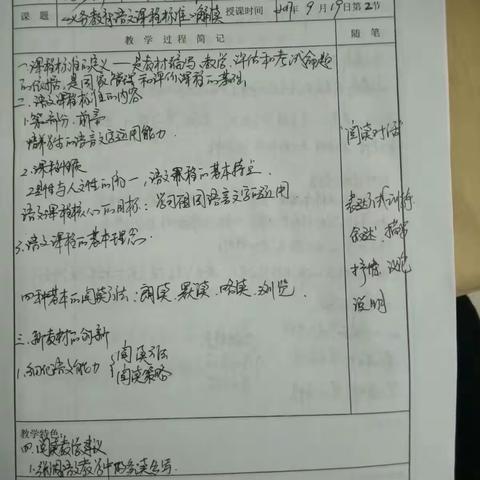 课题 《义务教育语文课程标准》解读 授课时间 2017年9月19日第2节
教学过程简记 随笔
一.课程标准的定义——是教材编写、教学、评估和考试命题
的依据,是国家管理和评价课程的基础。
二.语文课程标准的内容
1.第一部分.前言
培养学生的语言文字运用能力.
阅读对话
2.课程性质
工具性与人文性的统一,语文课程的基本特点.
语文课程核心的目标:学习祖国语言文字的运用
表达方式训练
叙述 描写
3.语文课程的基本理念.
抒情 议论
四种基本的阅读方法:朗读、默读、略读、浏览.
说明
三.新教材的创新
1.语文能力 {阅读方法
阅读策略
教学特色:
四.阅读教学建议